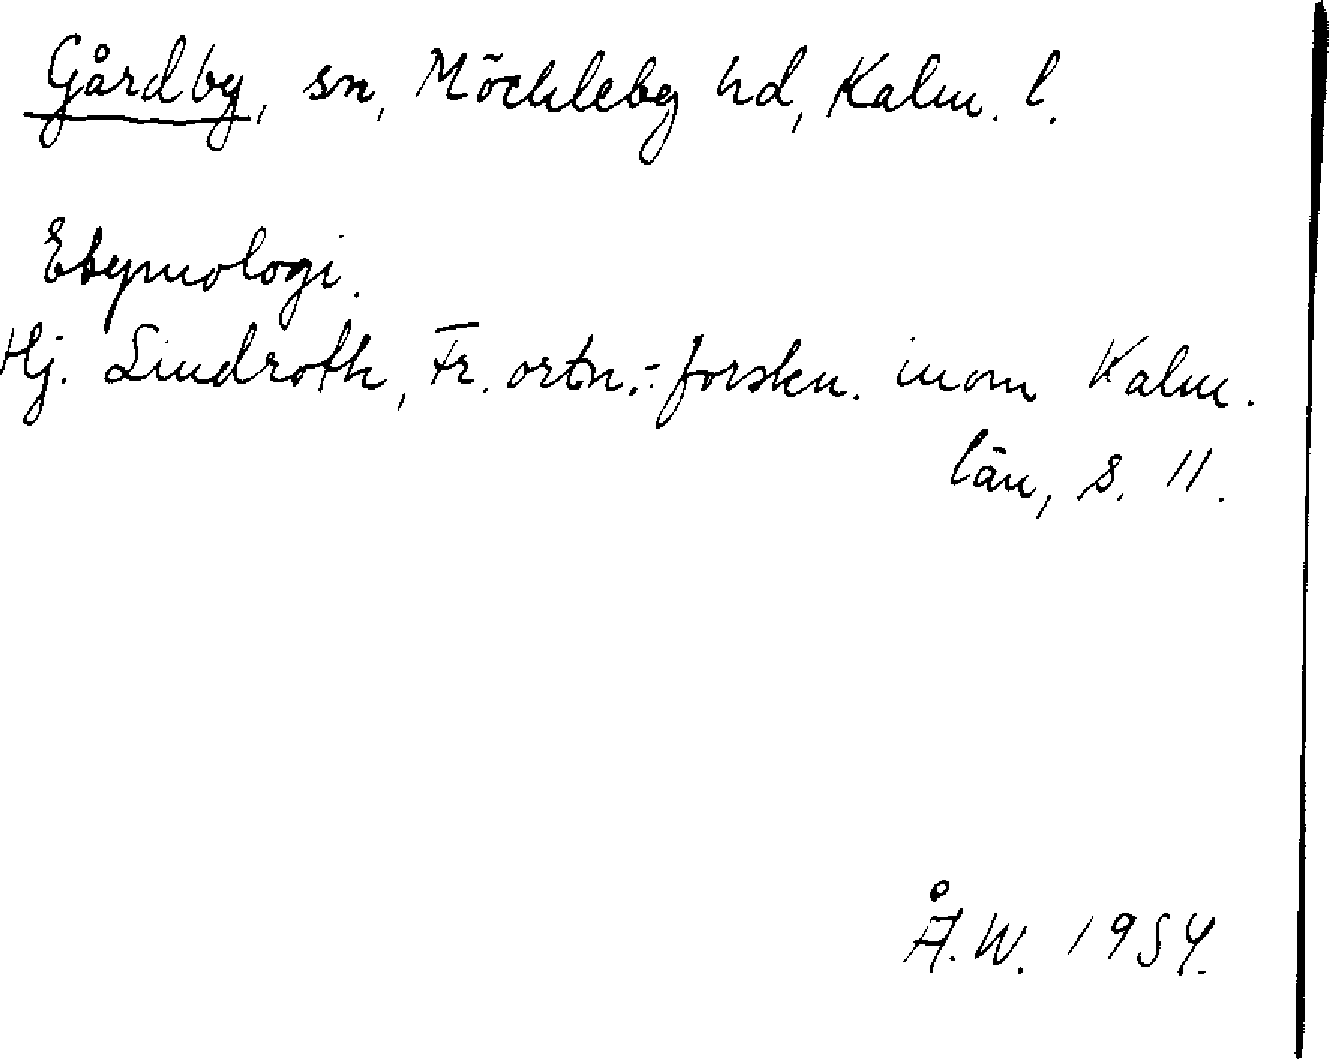 Gårdby, sn, Möckleby hd, Kalm. l.
Etymologi.
Hj. Lindroth, Fr. ortn.-forskn. inom Kalm.
län, s. 11.
Å.W. 1954.